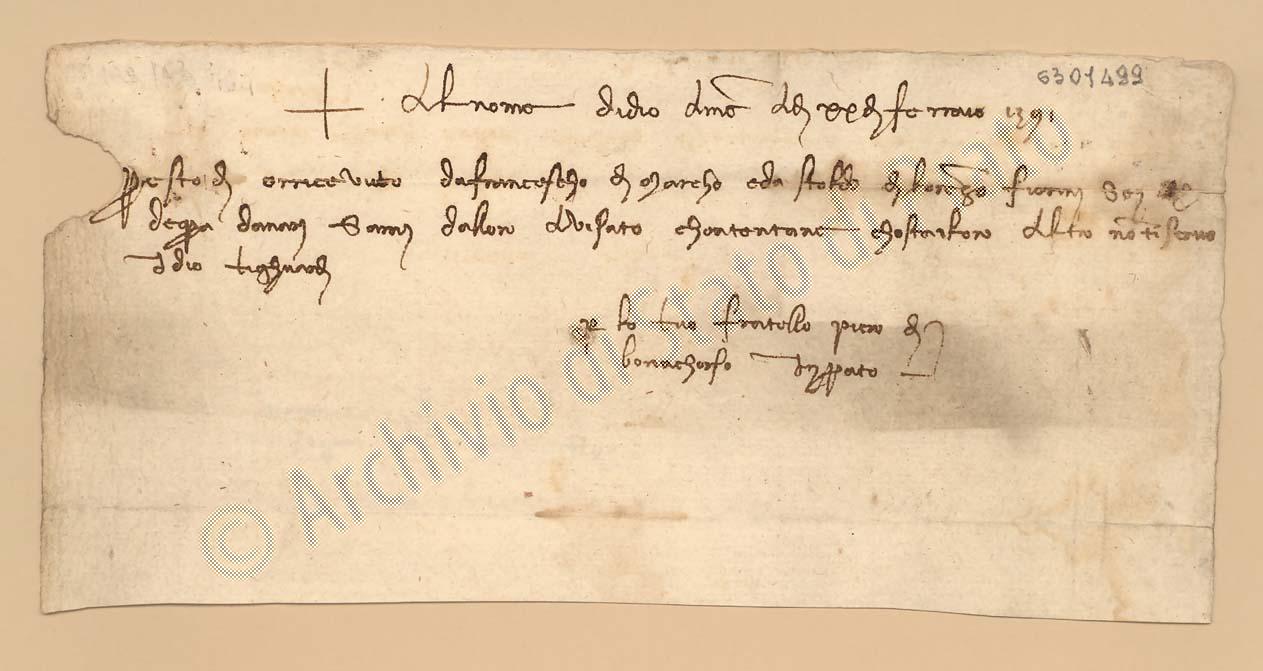 6301499
+ Al nome didio amē adì xx di ferraio 1391
Presto dì oricevuto dafranceschо di Marcho eda stoldo di lorēzo fiorini sei
danari sarai dalloro avisato chontentane chostaloro altro nō tiscrivo
Idio tighuardi
per lo tuo fratello piero di
bonachorso in prato
© Archivio di Stato di Prato